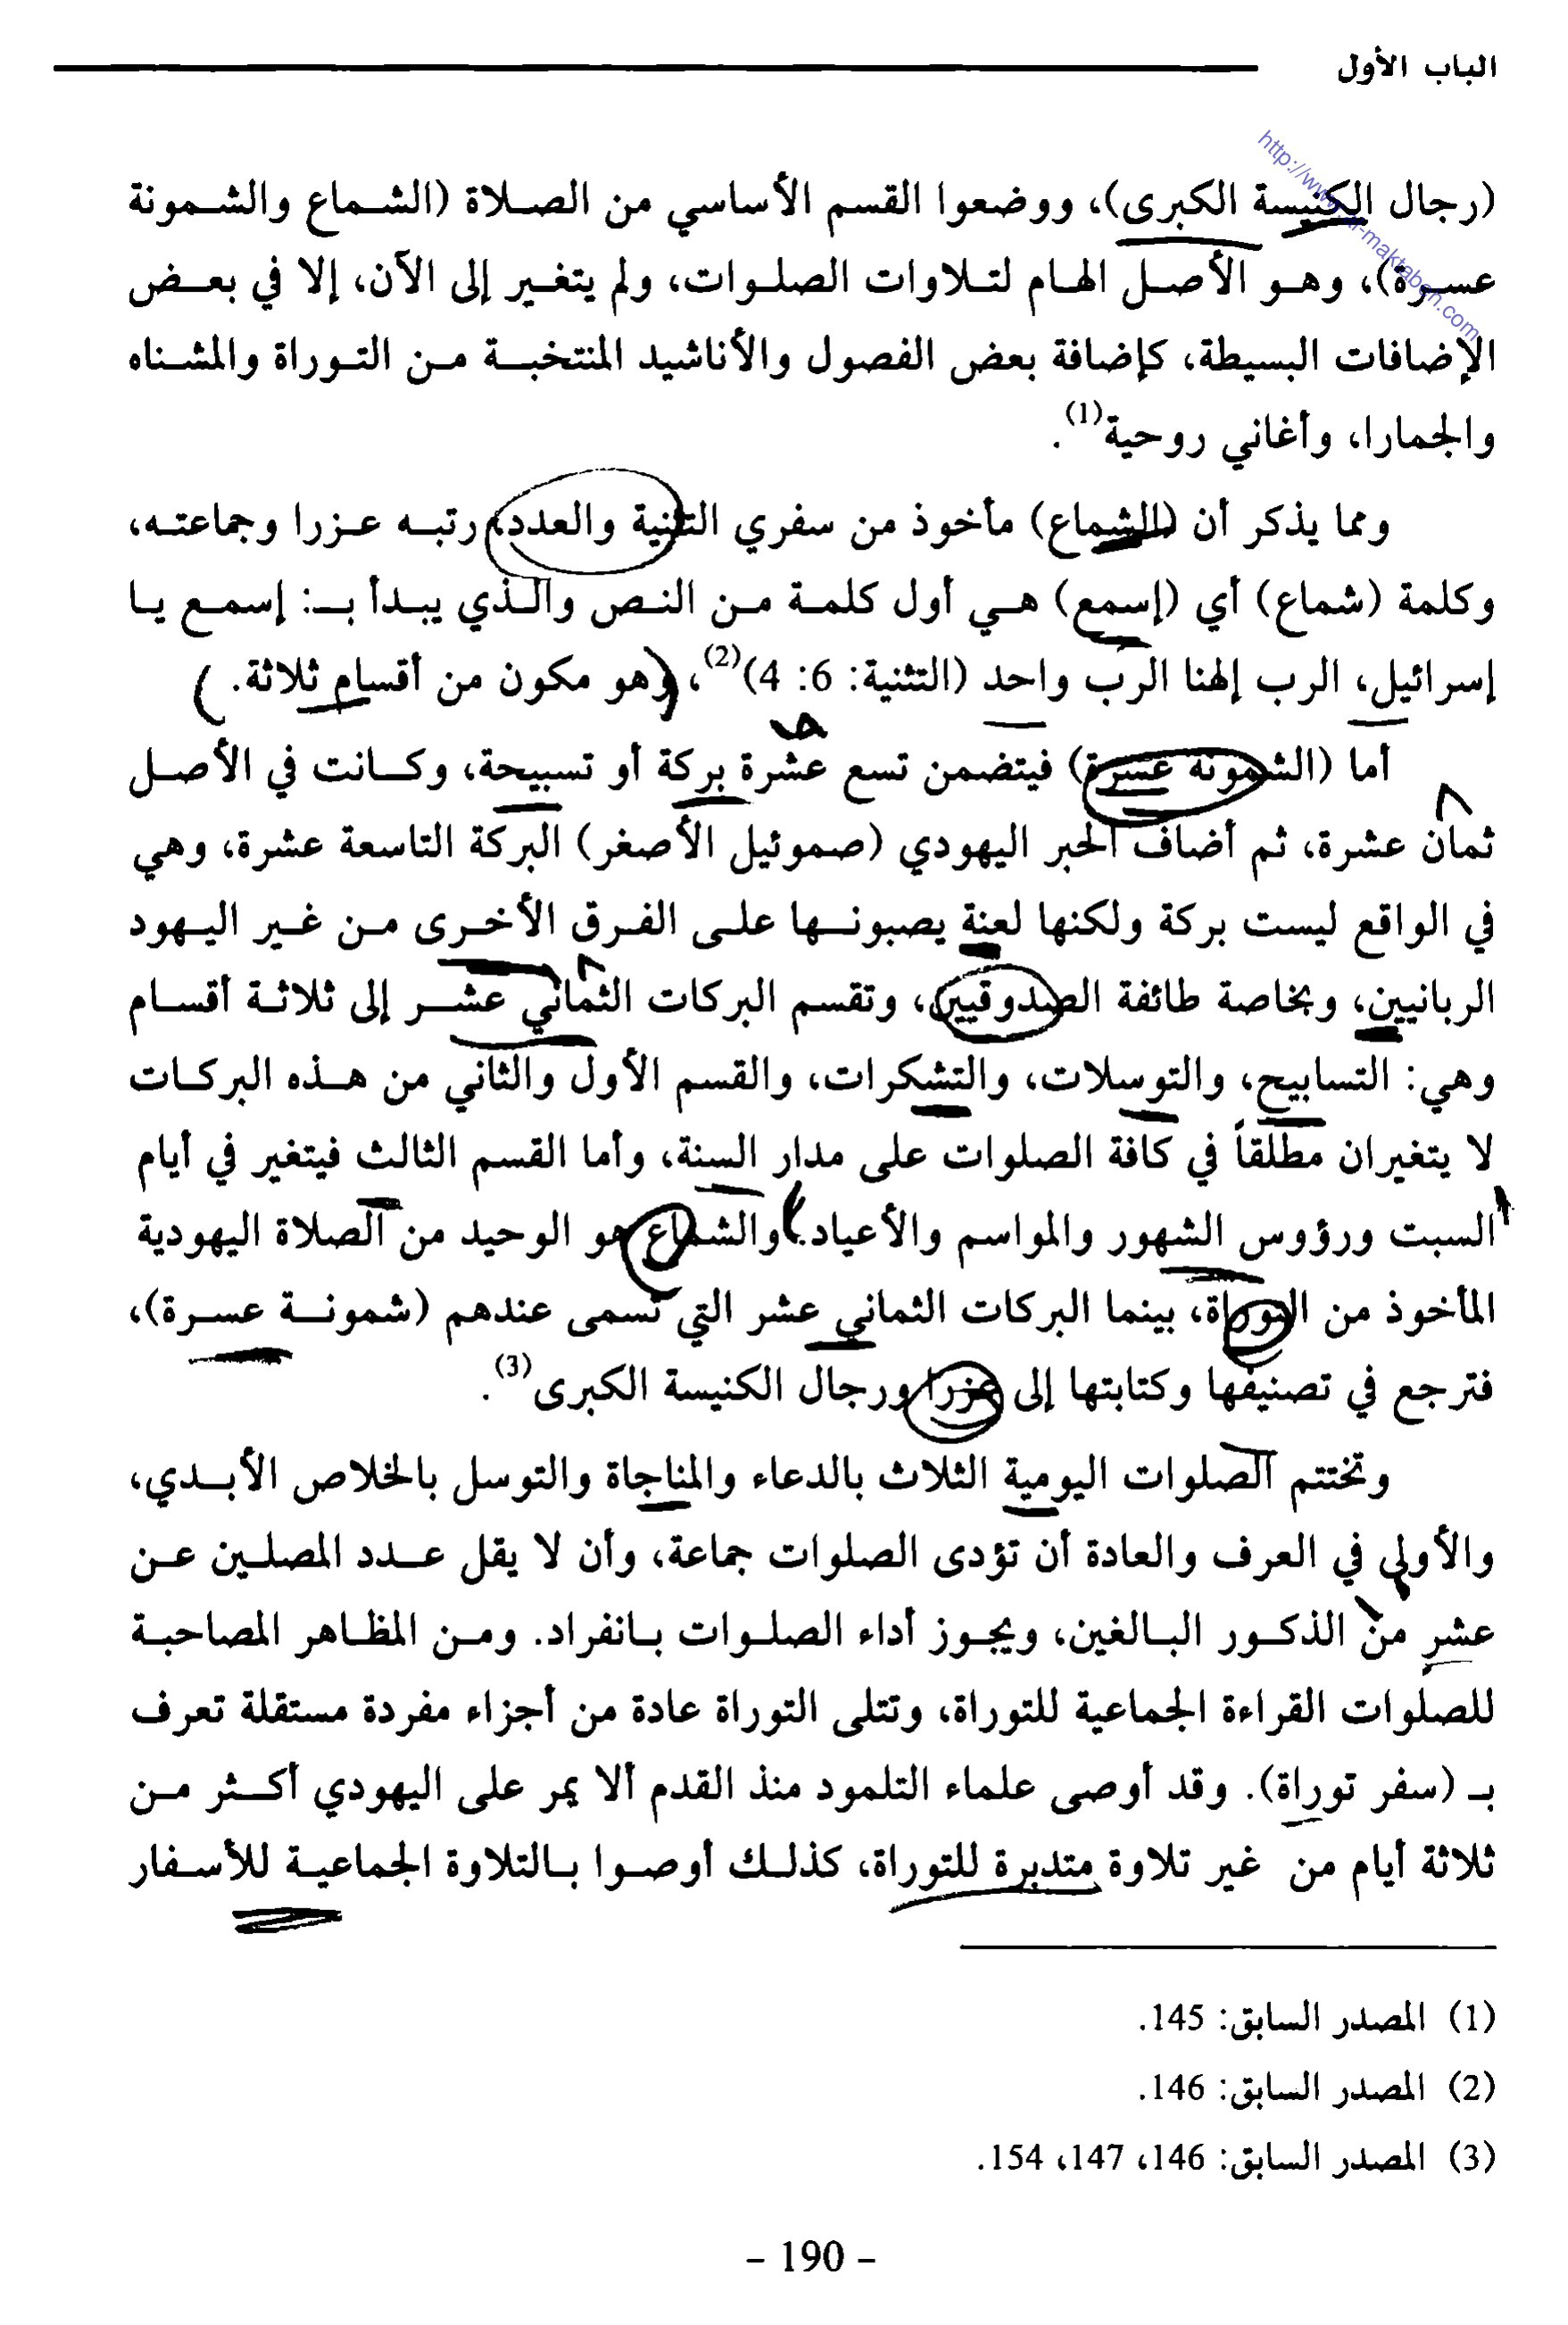 الباب الأول
http://www.al-maktabeh.com
(رجال الكنيسة الكبرى)، ووضعوا القسم الأساسي من الصلاة (الشماع والشمونة
عسرة)، وهو الأصل الهام لتلاوات الصلوات، ولم يتغير إلى الآن، إلا في بعض
الإضافات البسيطة، كإضافة بعض الفصول والأناشيد المنتخبة من التوراة والمشناه
والجمارا، وأغاني روحية(1).
ومما يذكر أن (الشماع) مأخوذ من سفري التثنية والعدد، رتبه عزرا وجماعته،
وكلمة (شماع) أي (إسمع) هي أول كلمة من النص والذي يبدأ بـ: إسمع يا
إسرائيل، الرب إلهنا الرب واحد (التثنية: 6: 4)(2)، وهو مكون من أقسام ثلاثة.
أما (الشمونة عسرة) فيتضمن تسع عشرة بركة أو تسبيحة، وكانت في الأصل
ثمان عشرة، ثم أضاف الحبر اليهودي (صموئيل الأصغر) البركة التاسعة عشرة، وهي
في الواقع ليست بركة ولكنها لعنة يصبونها على الفرق الأخرى من غير اليهود
الربانيين، وبخاصة طائفة الصدوقيين، وتقسم البركات الثماني عشر إلى ثلاثة أقسام
وهي: التسابيح، والتوسلات، والتشكرات، والقسم الأول والثاني من هذه البركات
لا يتغيران مطلقاً في كافة الصلوات على مدار السنة، وأما القسم الثالث فيتغير في أيام
السبت ورؤوس الشهور والمواسم والأعياد. والشماع هو الوحيد من الصلاة اليهودية
المأخوذ من التوراة، بينما البركات الثماني عشر التي تسمى عندهم (شمونة عسرة)،
فترجع في تصنيفها وكتابتها إلى عزرا ورجال الكنيسة الكبرى(3).
وتختتم الصلوات اليومية الثلاث بالدعاء والمناجاة والتوسل بالخلاص الأبدي،
والأولى في العرف والعادة أن تؤدى الصلوات جماعة، وأن لا يقل عدد المصلين عن
عشر من الذكور البالغين، ويجوز أداء الصلوات بانفراد. ومن المظاهر المصاحبة
للصلوات القراءة الجماعية للتوراة، وتتلى التوراة عادة من أجزاء مفردة مستقلة تعرف
بـ (سفر توراة). وقد أوصى علماء التلمود منذ القدم ألا يمر على اليهودي أكثر من
ثلاثة أيام من غير تلاوة متدبرة للتوراة، كذلك أوصوا بالتلاوة الجماعية للأسفار
(1) المصدر السابق: 145.
(2) المصدر السابق: 146.
(3) المصدر السابق: 146، 147، 154.
- 190 -